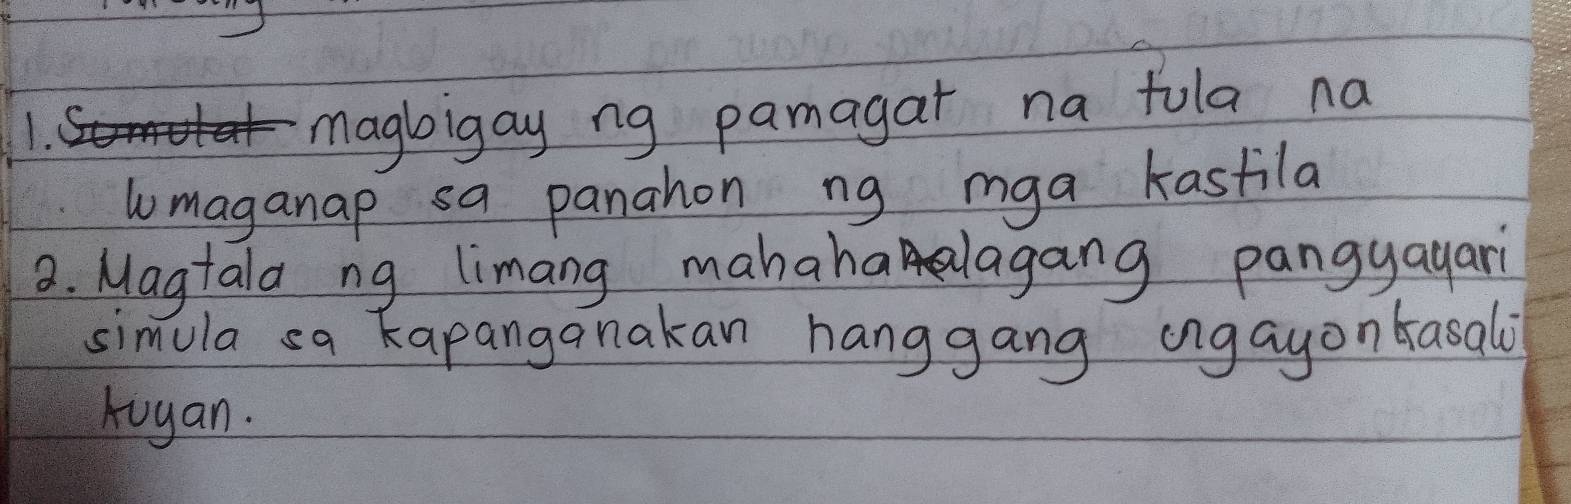 1. Sumulat magbigay ng pamagat na tula na
lumaganap sa panahon ng mga kastila
2. Magtala ng limang mahahalagang pangyayari
simula sa kapanganakan hanggang ngayonkasalu
kuyan.